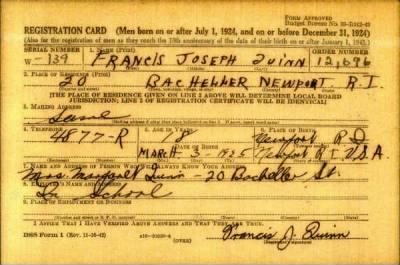 FORM APPROVED
REGISTRATION CARD (Men born on or after July 1, 1924, and on or before December 31, 1924)
(Also for the registration of men as they reach the 18th anniversary of the date of their birth on or after January 1, 1925.)
SERIAL NUMBER 1. NAME (Print) ORDER NUMBER
W-139 FRANCIS JOSEPH QUINN 12,696
2. PLACE OF RESIDENCE (Print)
20 BACHELLER NEWPORT R.I.
[THE PLACE OF RESIDENCE GIVEN ON LINE 2 ABOVE WILL DETERMINE LOCAL BOARD
JURISDICTION; LINE 2 OF REGISTRATION CERTIFICATE WILL BE IDENTICAL]
3. MAILING ADDRESS
Same
4. TELEPHONE 5. AGE IN YEARS 6. PLACE OF BIRTH
4877-R Newport R.I.
MARCH 3 1925 Newport R I U.S.A.
7. NAME AND ADDRESS OF PERSON WHO WILL ALWAYS KNOW YOUR ADDRESS
Mrs. Margaret Quinn - 20 Bacheller St.
8. EMPLOYER'S NAME AND ADDRESS
School
9. PLACE OF EMPLOYMENT OR BUSINESS
I AFFIRM THAT I HAVE VERIFIED ABOVE ANSWERS AND THAT THEY ARE TRUE.
DSS Form 1 (Rev. 11-16-42) (OVER) Francis J. Quinn